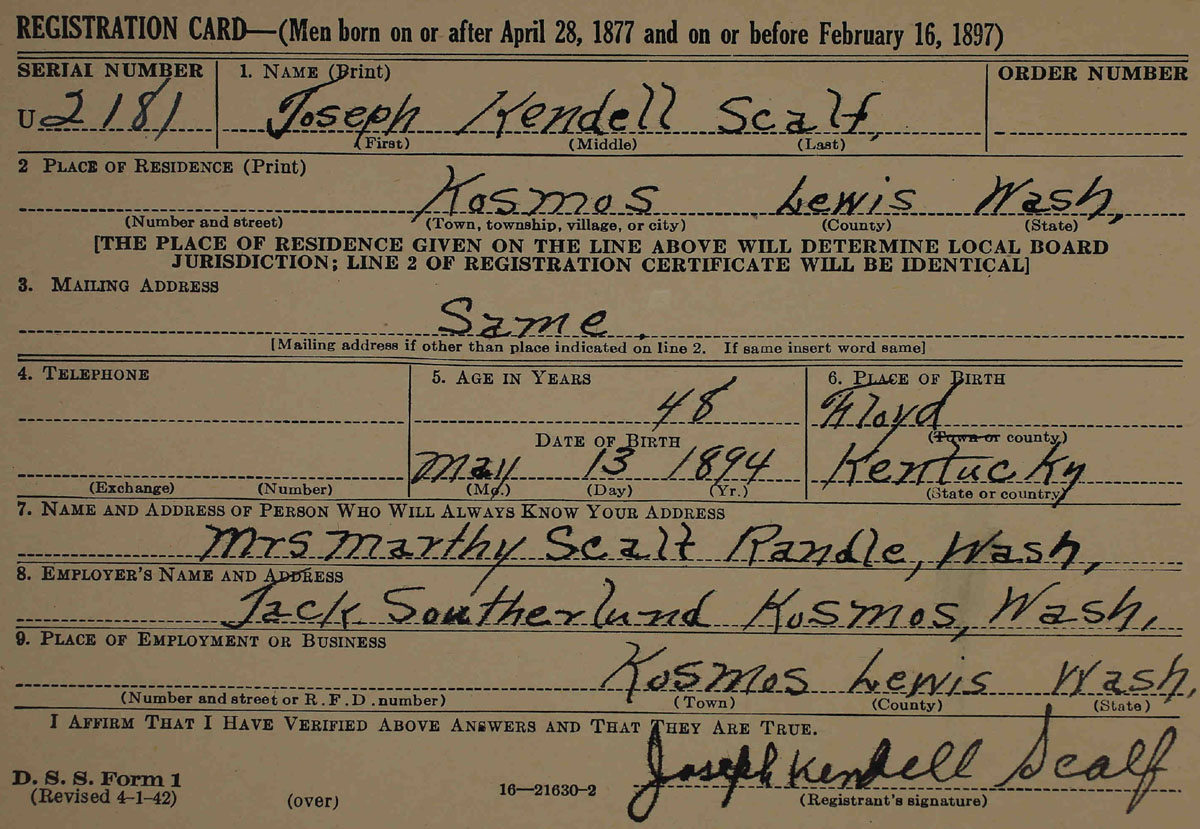 REGISTRATION CARD—(Men born on or after April 28, 1877 and on or before February 16, 1897)
SERIAL NUMBER 1. NAME (Print) ORDER NUMBER
U 2181 Joseph Kendell Scalf,
(First) (Middle) (Last)
2 PLACE OF RESIDENCE (Print)
Kosmos Lewis Wash,
(Number and street) (Town, township, village, or city) (County) (State)
[THE PLACE OF RESIDENCE GIVEN ON THE LINE ABOVE WILL DETERMINE LOCAL BOARD
JURISDICTION; LINE 2 OF REGISTRATION CERTIFICATE WILL BE IDENTICAL]
3. MAILING ADDRESS
Same.
[Mailing address if other than place indicated on line 2. If same insert word same]
4. TELEPHONE 5. AGE IN YEARS 6. PLACE OF BIRTH
48 Floyd
DATE OF BIRTH (Town or county)
May 13 1894 Kentucky
(Exchange) (Number) (Mo.) (Day) (Yr.) (State or country)
7. NAME AND ADDRESS OF PERSON WHO WILL ALWAYS KNOW YOUR ADDRESS
Mrs Marthy Scalf Randle, Wash,
8. EMPLOYER'S NAME AND ADDRESS
Jack Southerlund Kosmos, Wash,
9. PLACE OF EMPLOYMENT OR BUSINESS
Kosmos Lewis Wash,
(Number and street or R. F. D. number) (Town) (County) (State)
I AFFIRM THAT I HAVE VERIFIED ABOVE ANSWERS AND THAT THEY ARE TRUE.
Joseph Kendell Scalf
D. S. S. Form 1
(Revised 4-1-42) (over) 16—21630-2 (Registrant's signature)